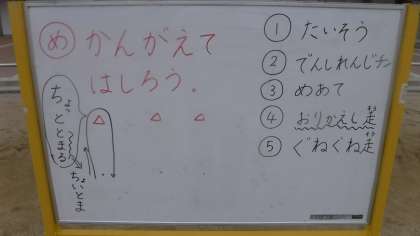 め かんがえて
はしろう。
ちょっととまる
ちょいとま
① たいそう
② でんしれんじチン
③ めあて
④ おりかえし走
⑤ ぐねぐね走